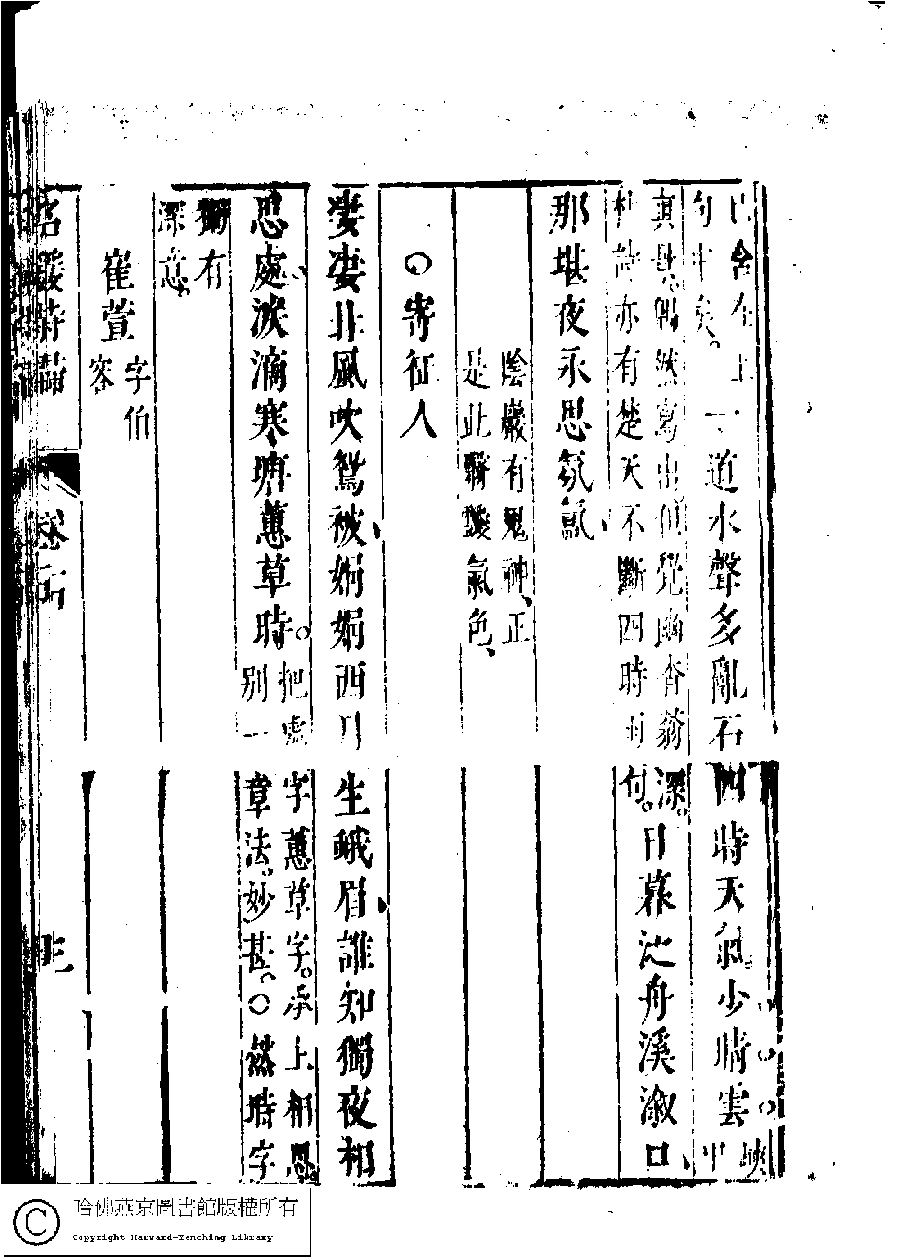 含在上一
句中矣。
道水聲多亂石四時天氣少晴雲
峽
中
真景。偶然寫出便覺幽杳蒼深。
杜詩亦有楚天不斷四時雨句。
日暮泛舟溪漵口、
那堪夜永思氛氳、
陰巖有鬼神、正
是此聯氣色、
○寄征人
凄凄北風吹鴛被、娟娟西月生峨眉、誰知獨夜相
思處、淚滴寒塘蕙草時。
把處字蕙草字。承上相思
別一章法。妙甚。○然時字
獨有
深意。
崔萱
字伯
容
名媛詩歸
卷
哈佛燕京圖書館版權所有
Copyright Harvard-Yenching Library